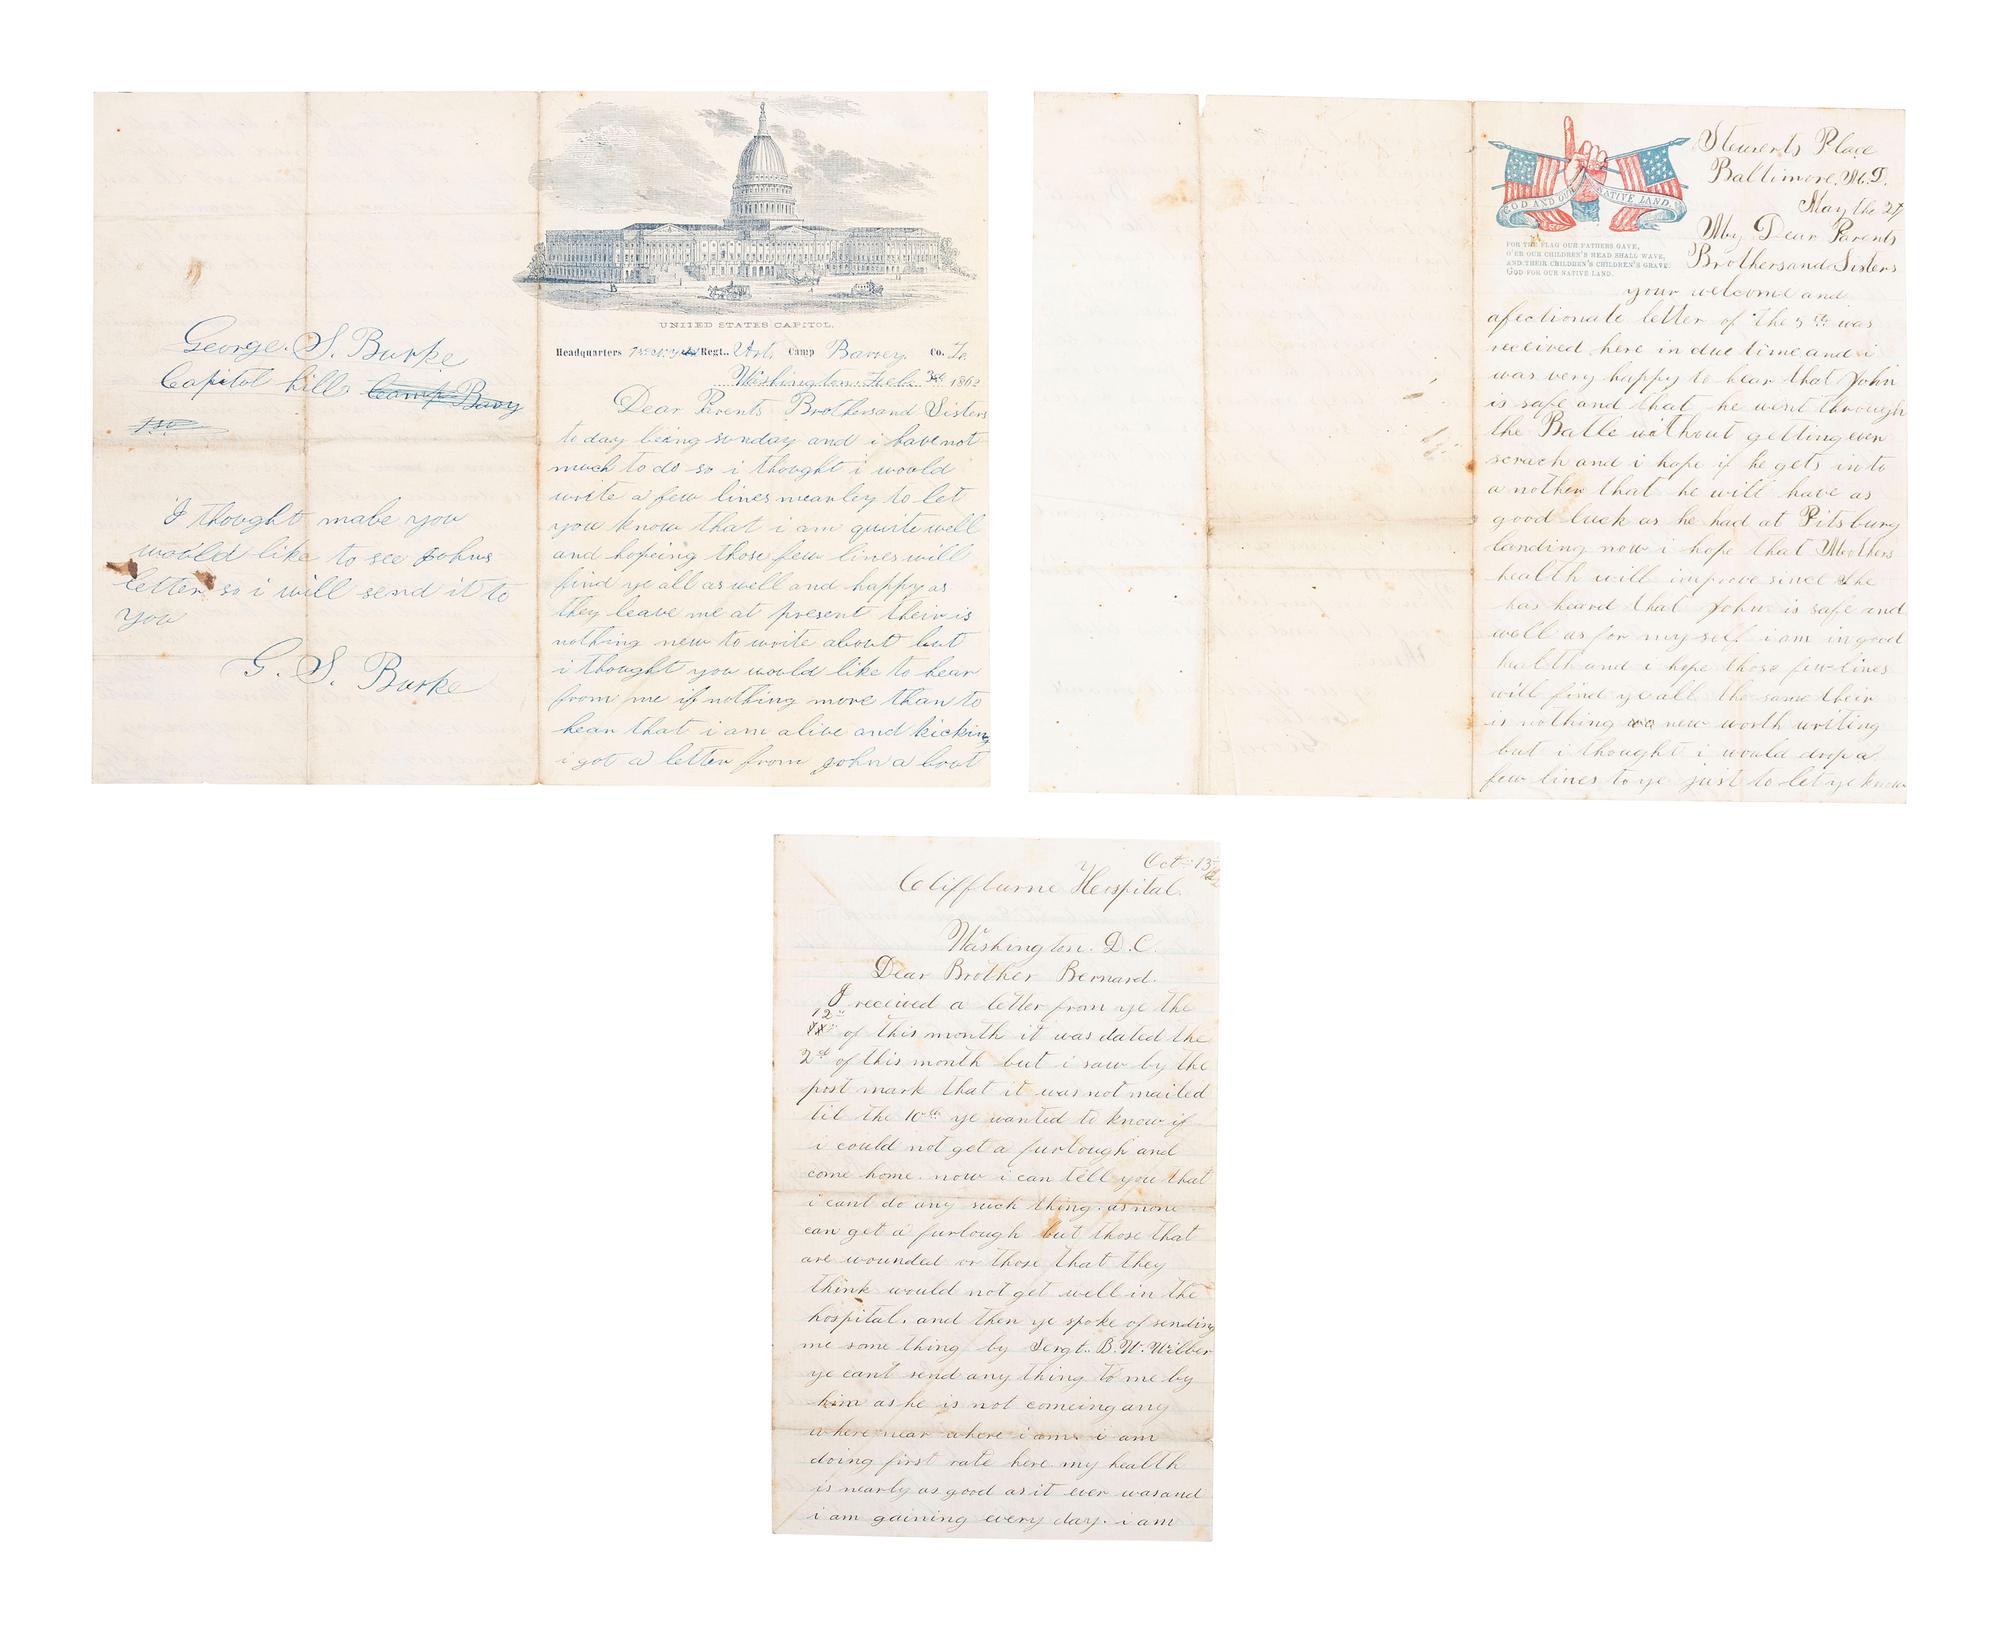 George. S. Burke
Capitol hill Camp Barry
1st
I thought mabe you
would like to see Johns
letter so i will send it to
you
G. S. Burke
UNITED STATES CAPITOL.
Headquarters Regt., Art. Camp Barrey. Co.
Washington. Feb. 1862
Dear Parents Brothersand Sisters
to day being sunday and i have not
much to do so i thought i would
write a few lines mearley to let
you know that i am quite well
and hopeing those few lines will
find ye all as well and happy as
they leave me at present their is
nothing new to write about but
i thought you would like to hear
from me if nothing more than to
hear that i am alive and kicking
i got a letter from john a bout
GOD AND OUR NATIVE LAND.
FOR THE FLAG OUR FATHERS GAVE,
O'ER OUR CHILDREN'S HEAD SHALL WAVE,
AND THEIR CHILDREN'S CHILDREN'S GRAVE.
GOD FOR OUR NATIVE LAND.
Stewerts Place
Baltimore. M. D.
May the 27
My Dear Parents
Brothersand Sisters
your welcome and
afectionate letter of the 5th was
received here in due time and i
was very happy to hear that John
is safe and that he went through
the Batle without getting even
scrach and i hope if he gets in to
a nother that he will have as
good luck as he had at Pitsburg
landing now i hope that Mothers
health will improve since she
has heard that John is safe and
well as for my self i am in good
health and i hope those few lines
will find ye all the same their
is nothing new worth writing
but i thought i would drop a
few lines to ye just to let ye know
Oct 13
Cliffburne Hospital.
Washington. D.C.
Dear Brother Bernard.
I received a letter from ye the
12th of this month it was dated the
2nd of this month but i saw by the
post mark that it was not mailed
til the 10th ye wanted to know if
i could not get a furlough and
come home. now i can tell you that
i cant do any such thing. as none
can get a furlough but those that
are wounded or those that they
think would not get well in the
hospital. and then ye spoke of sending
me some thing by Sergt. B. W. Wilber
ye cant send any thing to me by
him as he is not comeing any
where near where i am. i am
doing first rate here. my health
is nearly as good as it ever was and
i am gaining every day. i am